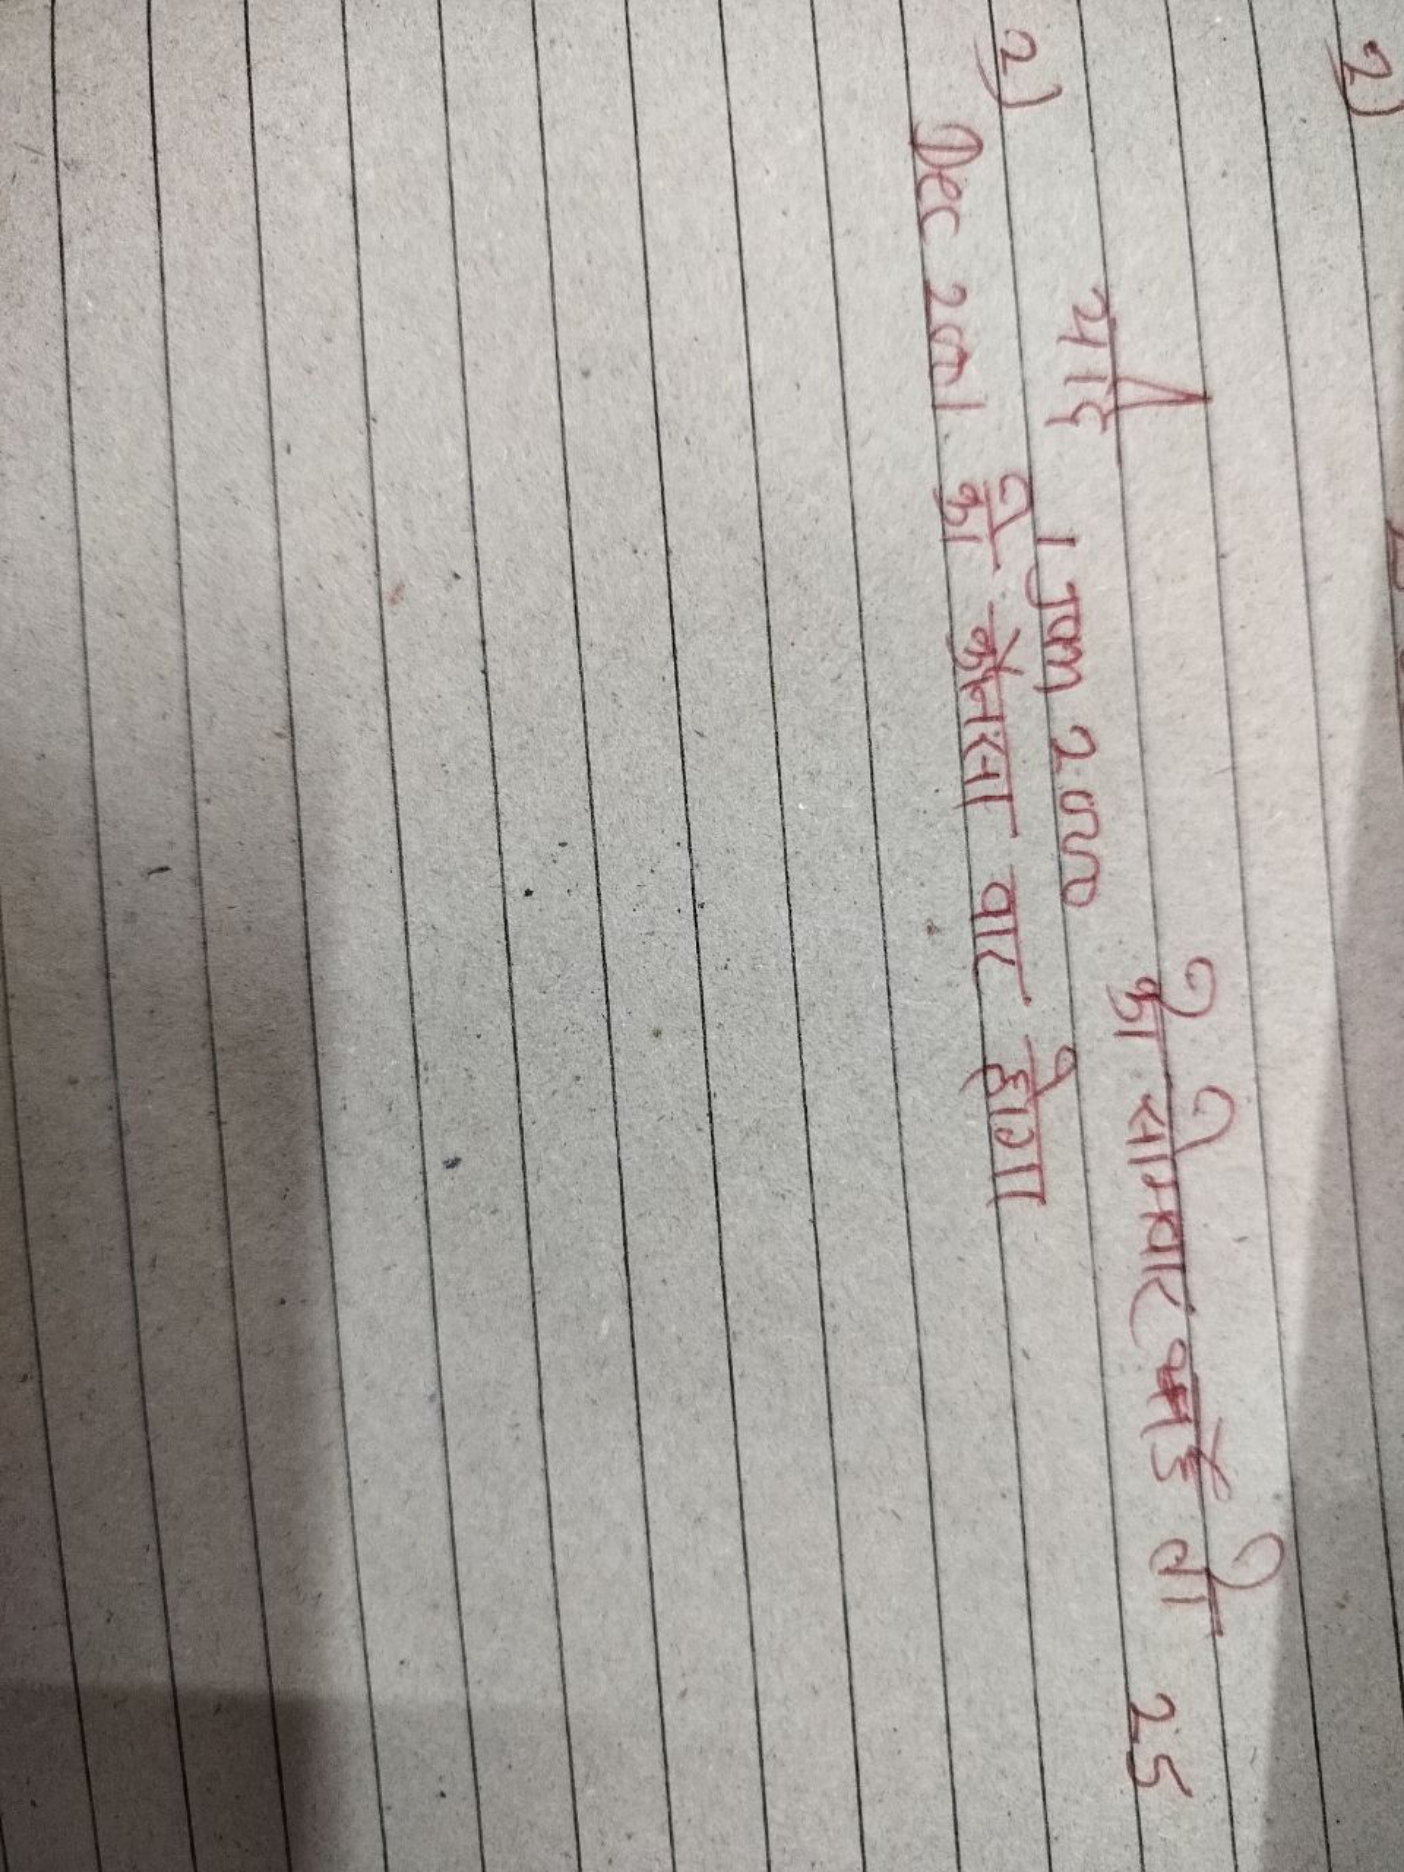 2)
2) यदि 1 Jan 2000 को सोमवार है तो 25
Dec 2001 को कौनसा वार होगा